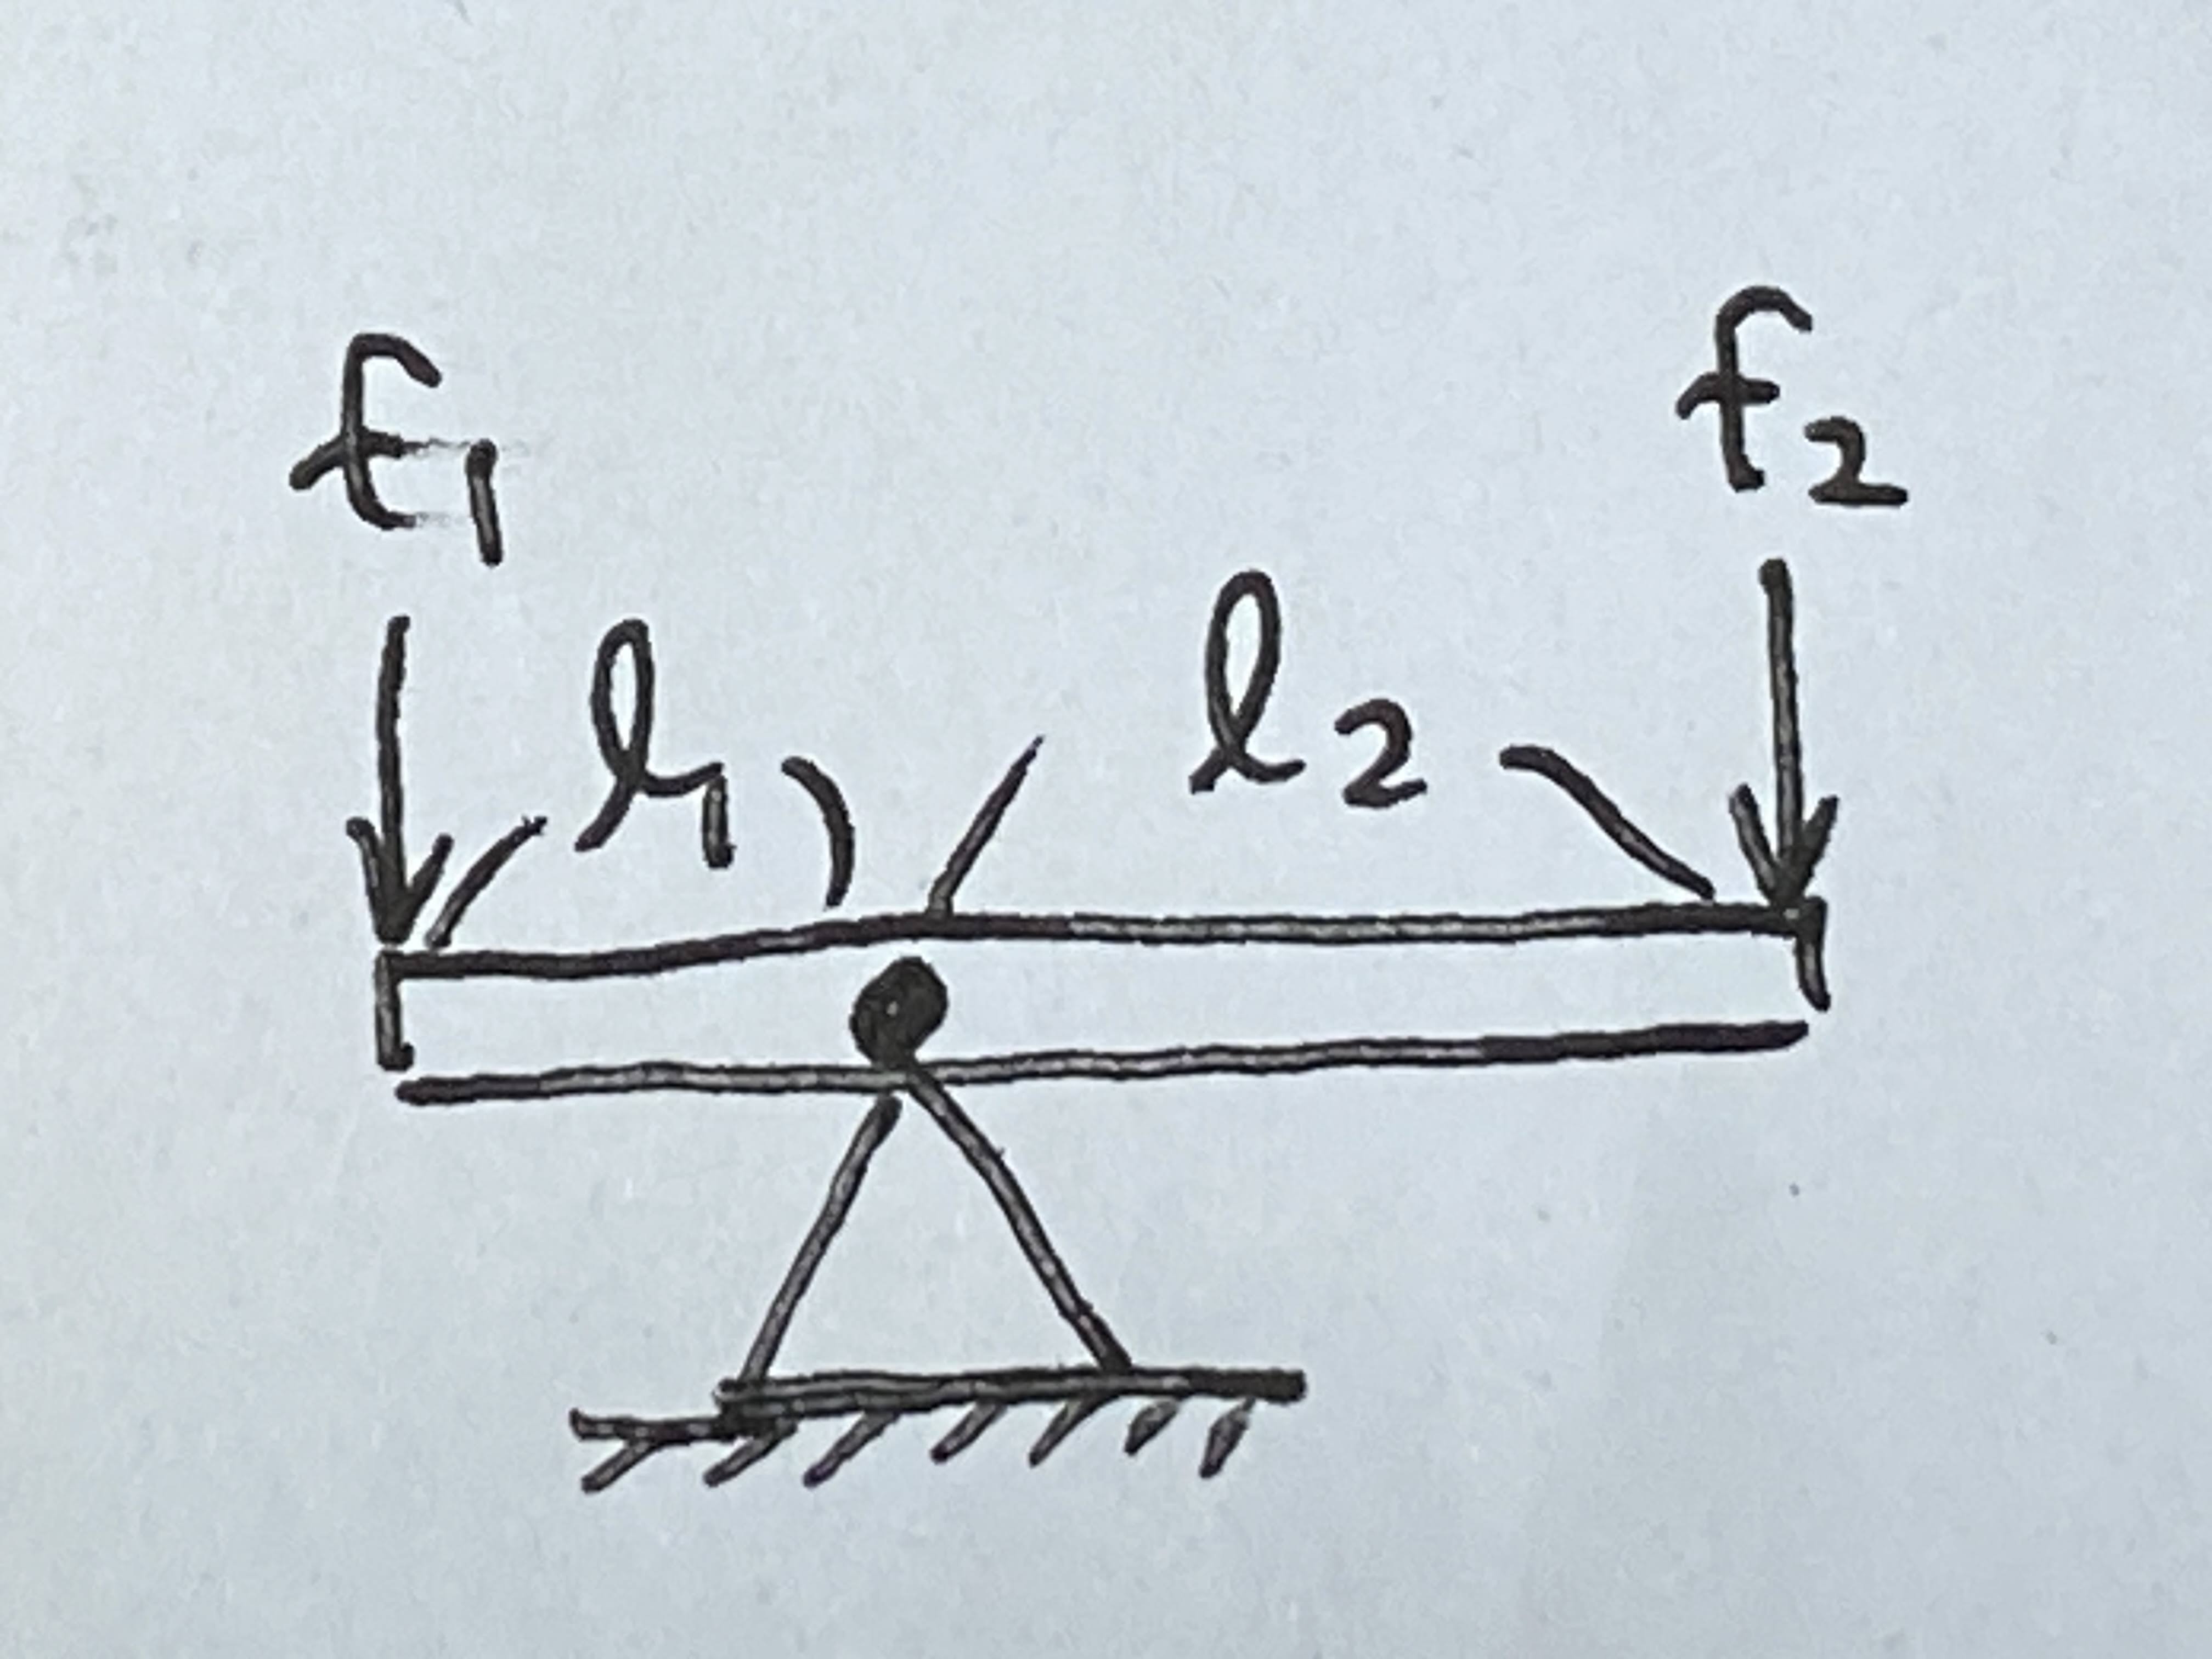 f1
f2
l1
l2